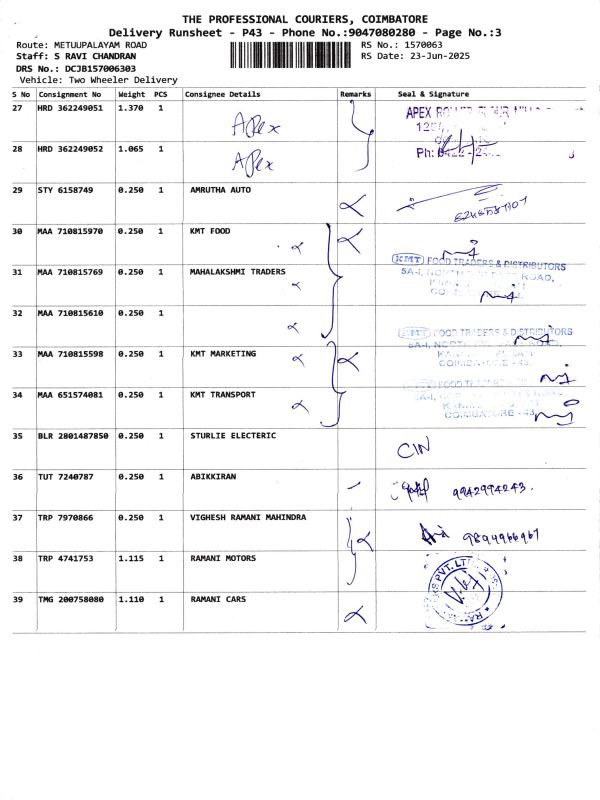 THE PROFESSIONAL COURIERS, COIMBATORE
Delivery Runsheet - P43 - Phone No.:9047080280 - Page No.:3
Route: METUUPALAYAM ROAD RS No.: 1570063
Staff: S RAVI CHANDRAN RS Date: 23-Jun-2025
DRS No.: DCJB157006303
Vehicle: Two Wheeler Delivery
S No Consignment No Weight PCS Consignee Details Remarks Seal & Signature
27 HRD 362249051 1.370 1 Apex APEX
28 HRD 362249052 1.065 1 Apex Ph:
29 STY 6158749 0.250 1 AMRUTHA AUTO
30 MAA 710815970 0.250 1 KMT FOOD
KMT FOOD TRADERS & DISTRIBUTORS
31 MAA 710815769 0.250 1 MAHALAKSHMI TRADERS 5A-I, ROAD,
32 MAA 710815610 0.250 1
KMT FOOD TRADERS & DISTRIBUTORS
33 MAA 710815598 0.250 1 KMT MARKETING
COIMBATORE - 43.
34 MAA 651574081 0.250 1 KMT TRANSPORT
COIMBATORE - 43.
35 BLR 2801487850 0.250 1 STURLIE ELECTERIC CIN
36 TUT 7240787 0.250 1 ABIKKIRAN 9942994243.
37 TRP 7970866 0.250 1 VIGHESH RAMANI MAHINDRA 9894966967
38 TRP 4741753 1.115 1 RAMANI MOTORS
PVT. LTD
39 TMG 200758080 1.110 1 RAMANI CARS